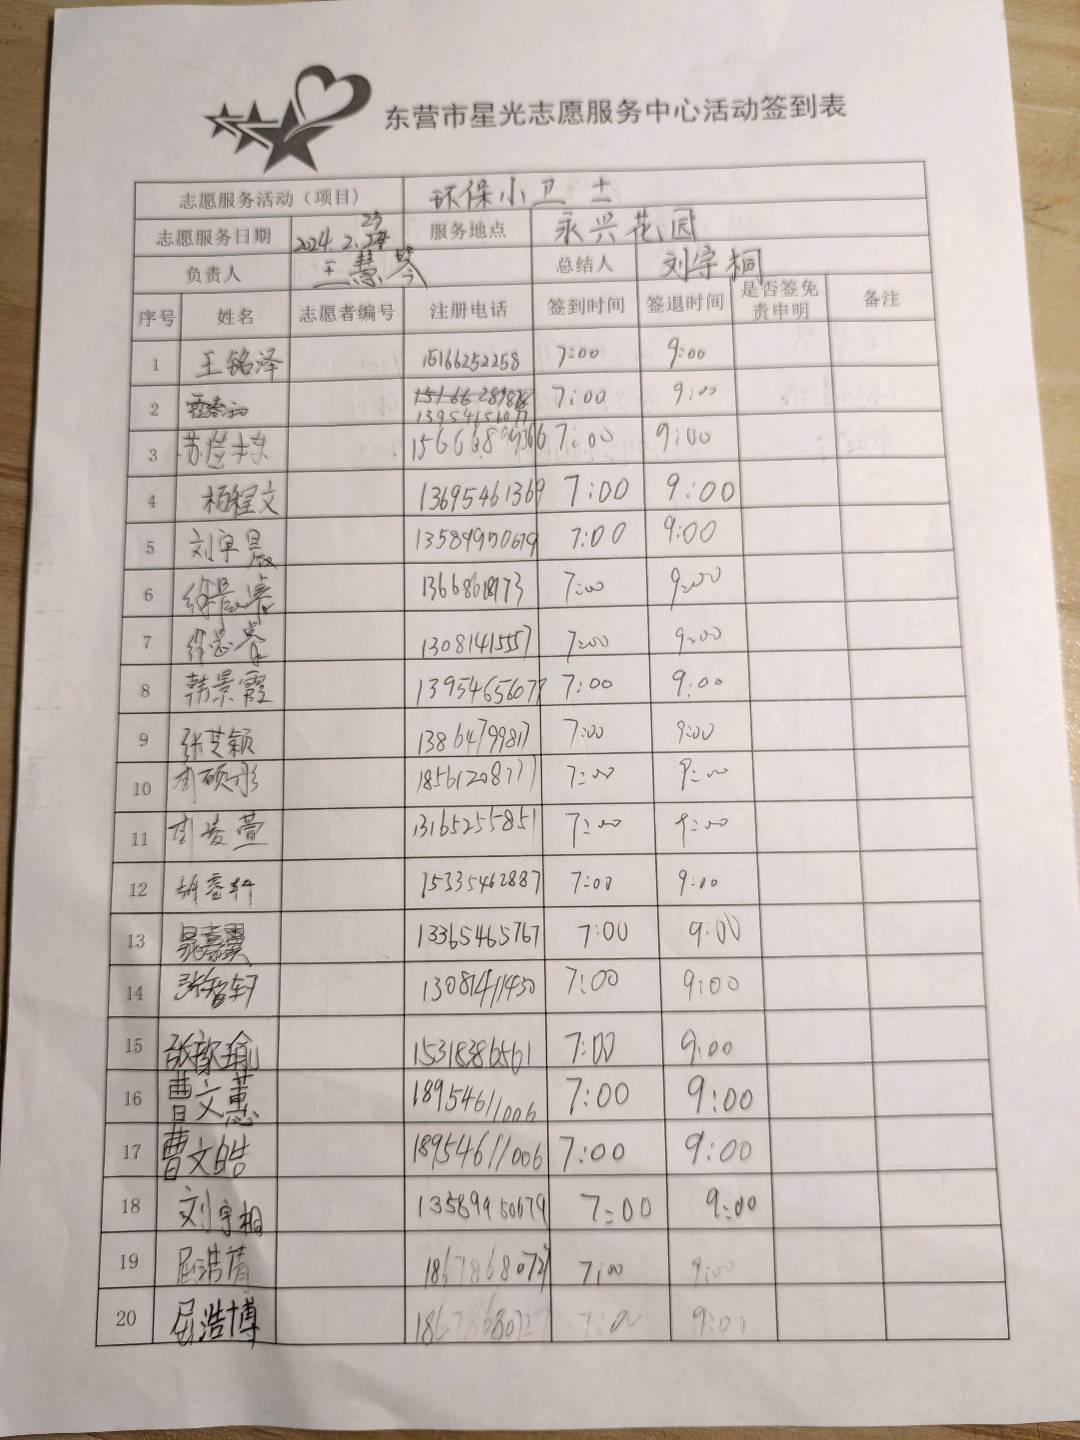 东营市星光志愿服务中心活动签到表
志愿服务活动（项目） 环保小卫士
志愿服务日期 2024.2.23 服务地点 永兴花园
负责人 王慧琴 总结人 刘宇桐
序号 姓名 志愿者编号 注册电话 签到时间 签退时间 是否签免责申明 备注
1 王铭泽 15166252258 7:00 9:00
2 13954656077 7:00 9:00
3 7:00 9:00
4 杨程文 13695461369 7:00 9:00
5 刘宇晨 13589950679 7:00 9:00
6 7:00 9:00
7 13081415557 7:00 9:00
8 韩景霞 13954656077 7:00 9:00
9 张芸颖 13864799817 7:00 9:00
10 周硕彤 18561208777 7:00 9:00
11 周凌萱 13165255851 7:00 9:00
12 15335462887 7:00 9:00
13 晁嘉翼 13365465767 7:00 9:00
14 张智轩 13081411430 7:00 9:00
15 张歆瑜 15318386561 7:00 9:00
16 曹文蕙 18954611006 7:00 9:00
17 曹文皓 18954611006 7:00 9:00
18 刘宇桐 13589950679 7:00 9:00
19 屈浩菁 18678680727 7:00 9:00
20 屈浩博 18678680727 7:00 9:00